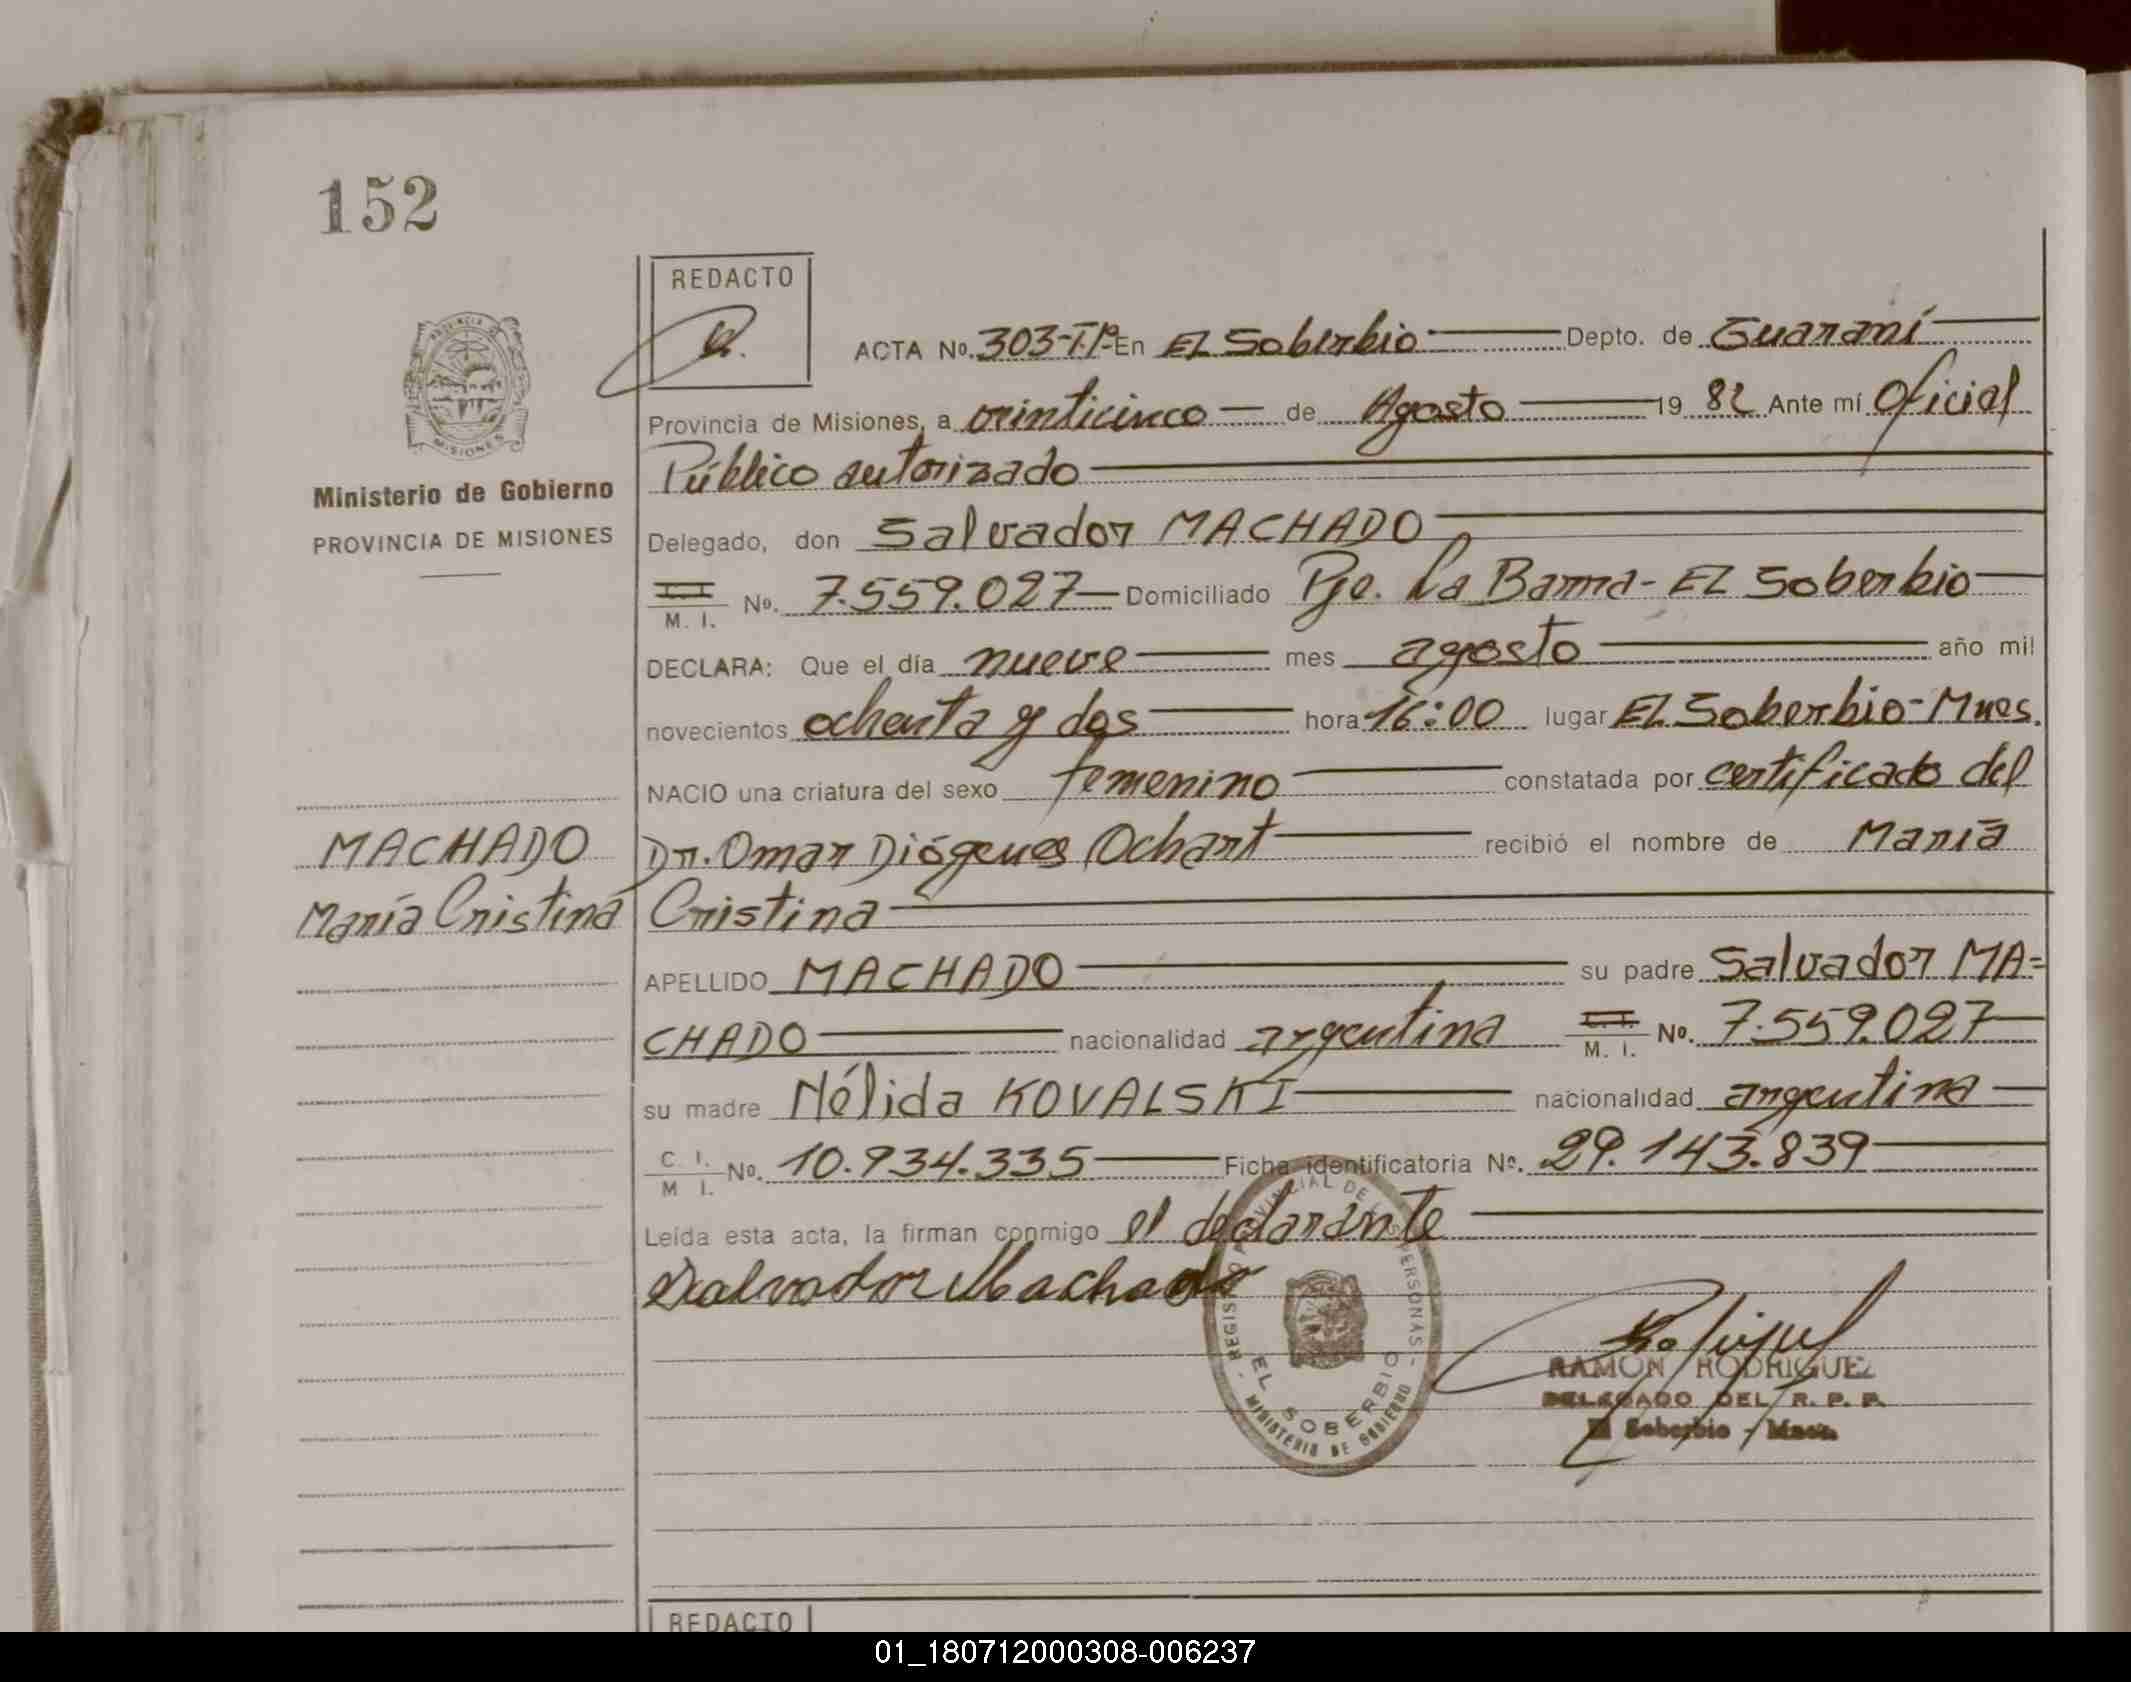 152
REDACTO
ACTA No. 303-T.Iº En El Soberbio Depto. de Guaraní
Provincia de Misiones, a veinticinco de Agosto 19 82 Ante mí Oficial
Público autorizado
Ministerio de Gobierno
PROVINCIA DE MISIONES
Delegado, don Salvador MACHADO
C. I.
M. I. No. 7.559.027 Domiciliado Pje. La Barra - El Soberbio
DECLARA: Que el día nueve mes agosto año mil
novecientos ochenta y dos hora 16:00 lugar El Soberbio-Mnes.
NACIO una criatura del sexo femenino constatada por certificado del
MACHADO
Dr. Omar Diógenes Ochart recibió el nombre de María
María Cristina
Cristina
APELLIDO MACHADO su padre Salvador MA=
CHADO nacionalidad argentina C. I.
M. I. No. 7.559.027
su madre Nélida KOVALSKI nacionalidad argentina
C. I.
M I. No. 10.934.335 Ficha identificatoria No. 29.143.839
Leída esta acta, la firman conmigo el declarante
Salvador Machado
REGISTRO PROVINCIAL DE LAS PERSONAS
EL SOBERBIO
MINISTERIO DE GOBIERNO
RAMON RODRIGUEZ
DELEGADO DEL R. P. P.
El Soberbio - Mnes.
REDACTO
01_180712000308-006237
PROVINCIA DE
MISIONES